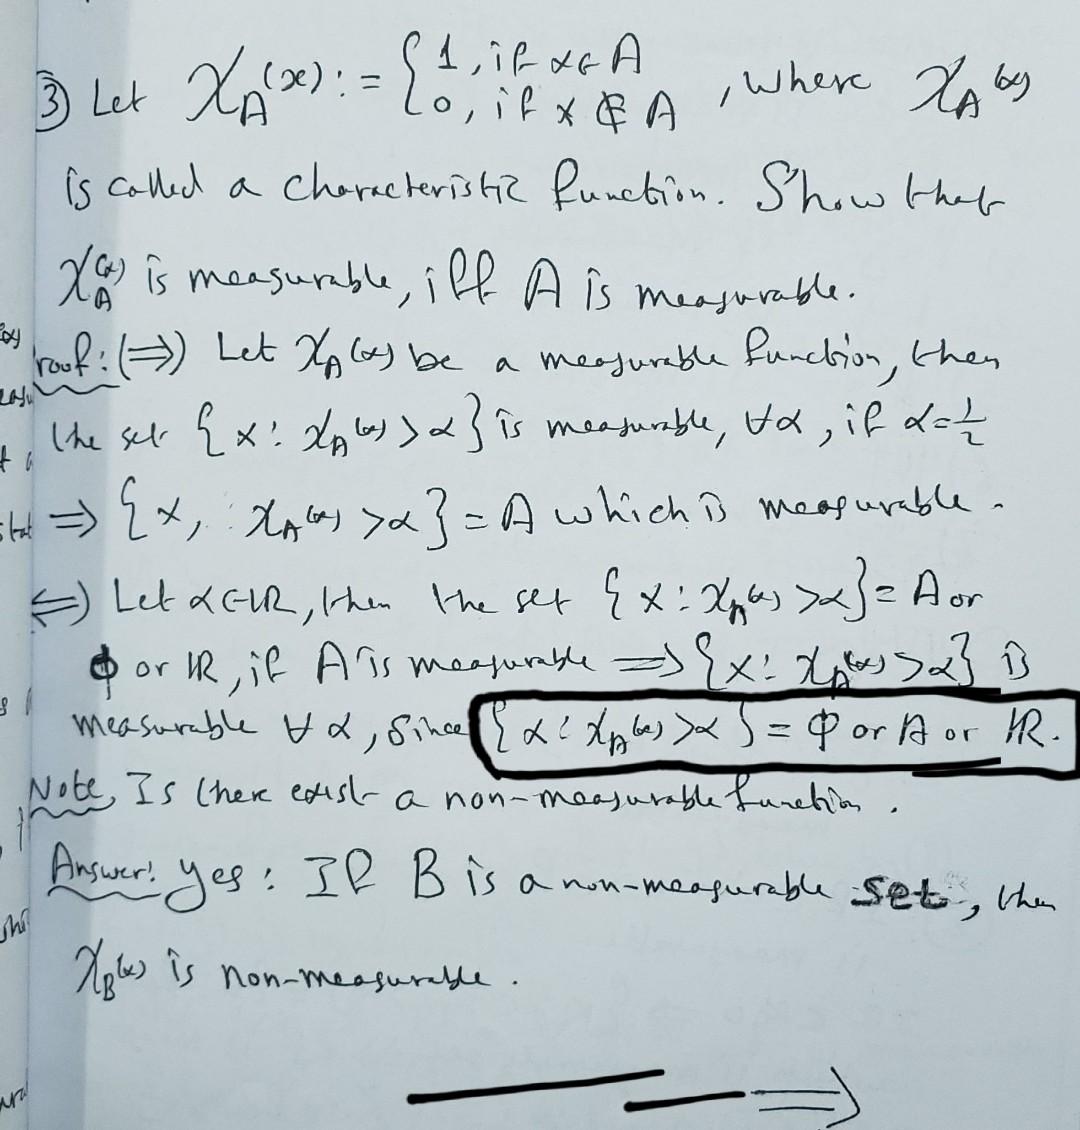 ③ Let χ_A(x) := { 1, if x ∈ A
0, if x ∉ A , where χ_A(x)
is called a characteristic function. Show that
χ_A(x) is measurable, iff A is measurable.
roof: (⇒) Let χ_A(x) be a measurable function, then
the set {x : χ_A(x) > α} is measurable, ∀α, if α = 1/2
⇒ {x, : χ_A(x) > α} = A which is measurable.
⇐) Let α ∈ IR, then the set {x : χ_A(x) > α} = A or
ϕ or IR, if A is measurable ⇒ {x : χ_A(x) > α} is
measurable ∀α, since {x : χ_A(x) > α} = ϕ or A or IR.
Note, Is there exist a non-measurable function.
Answer: yes : If B is a non-measurable set, then
χ_B(x) is non-measurable.
⇒